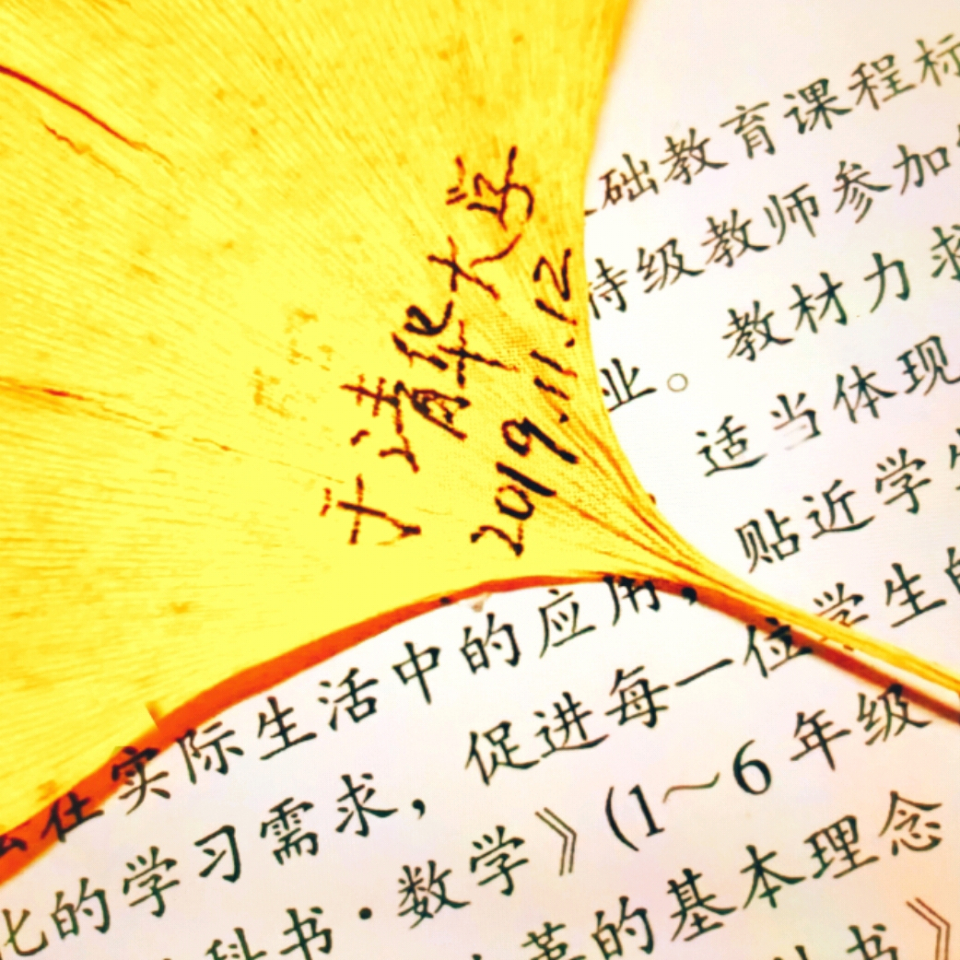 于清华大学
2019.11.12
础教育课程标
特级教师参加
业。教材力求
适当体现
在实际生活中的应用，贴近学生
化的学习需求，促进每一位学生的
科书·数学》（1~6年级
革的基本理念
书》